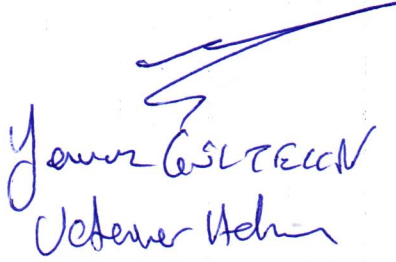 Yavuz GÜLTEKİN
Veteriner Hekim